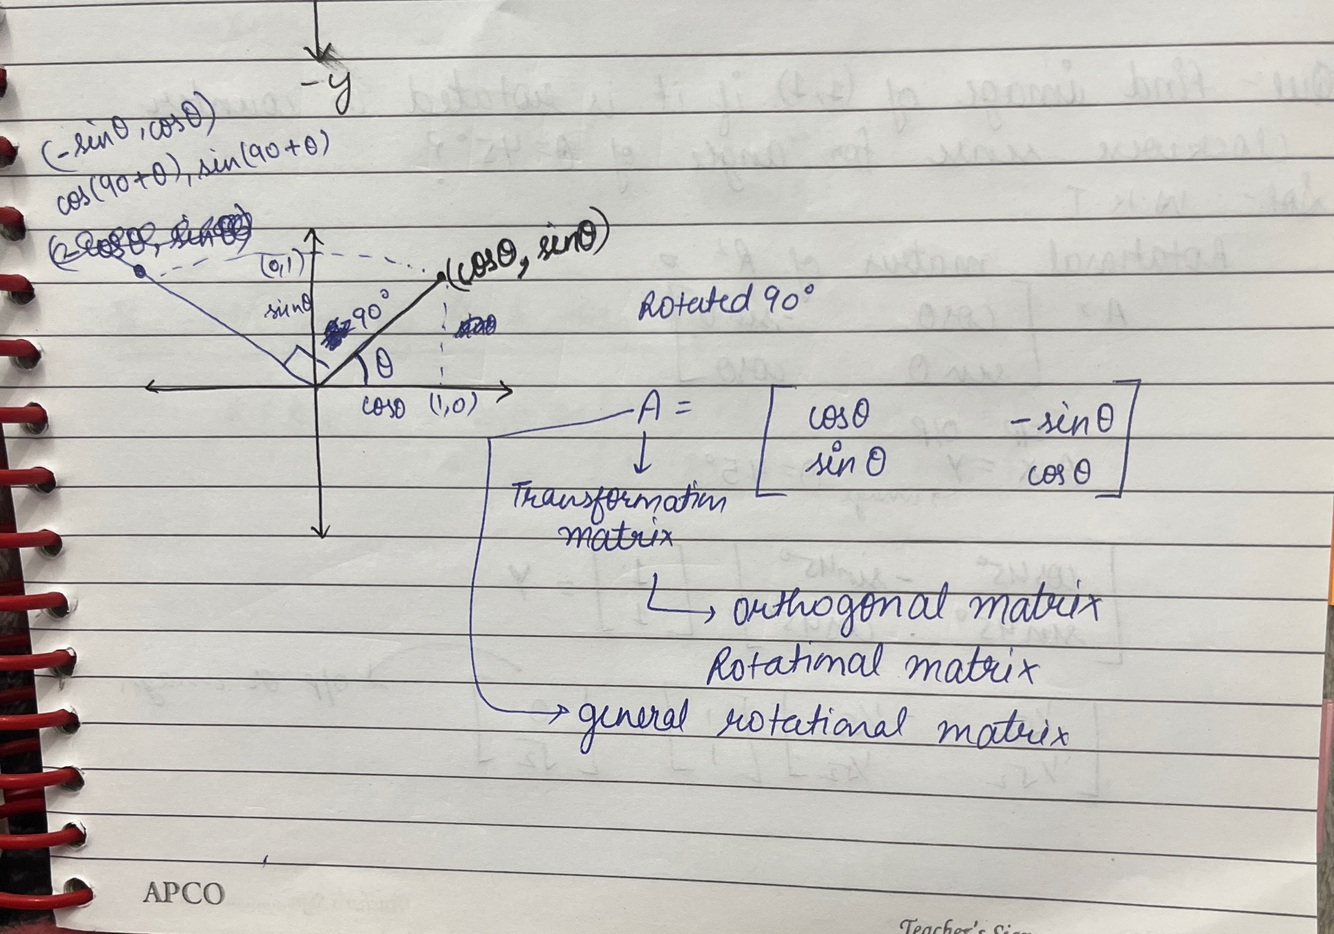 -y
(-sinθ, cosθ)
cos(90+θ), sin(90+θ)
(0,1)
(cosθ, sinθ)
sinθ
90°
θ
Rotated 90°
cosθ (1,0)
A = [ cosθ -sinθ
sinθ cosθ ]
Transformation
matrix
orthogonal matrix
Rotational matrix
general rotational matrix
APCO
Teacher's